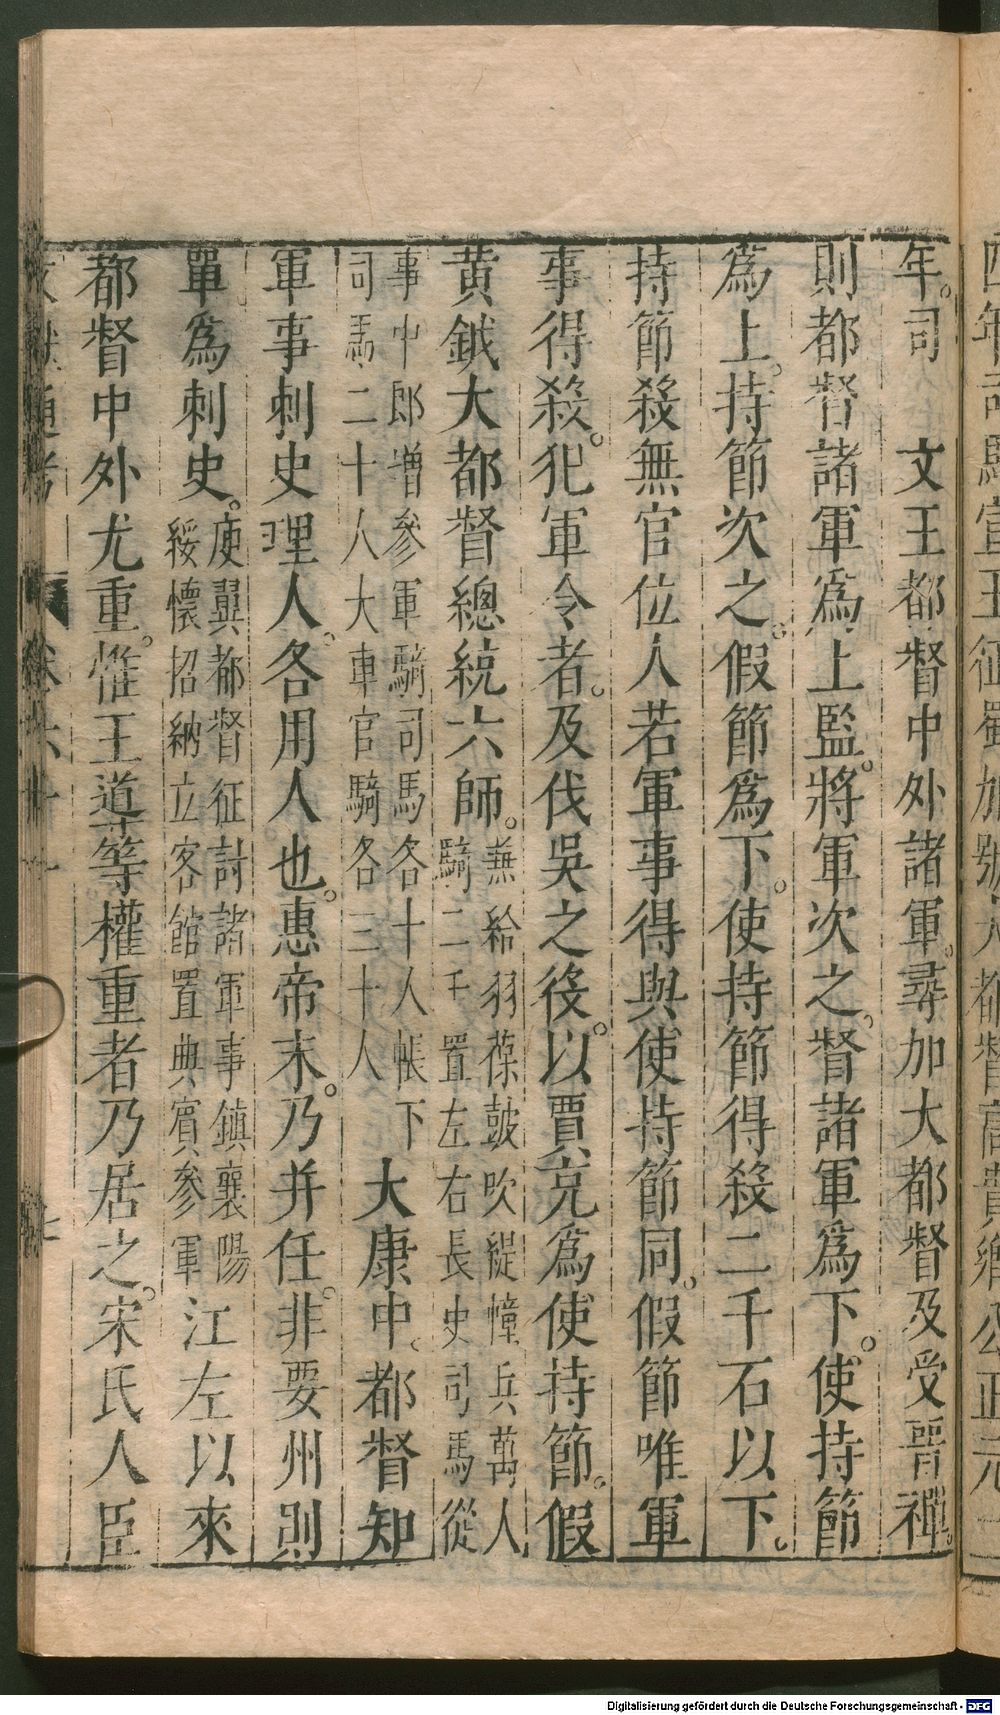 年。司　文王都督中外諸軍。尋加大都督及受晉禪。
則都督諸軍爲上監。將軍次之。督諸軍爲下。使持節
爲上。持節次之。假節爲下。使持節得殺二千石以下。
持節殺無官位人若軍事得與使持節同。假節唯軍
事得殺。犯軍令者。及伐吳之役。以賈充爲使持節。假
黃鉞大都督總統六師。
兼給羽葆鼓吹緹幢兵萬人
騎二千置左右長史司馬從
事中郎增參軍騎司馬各十人帳下
司馬二十人大車官騎各三十人
大康中、都督知
軍事刺史理人。各用人也。惠帝末。乃并任。非要州則
單爲刺史。
庾翼都督征討諸軍事鎮襄陽
綏懷招納立客館置典賓參軍
江左以來
都督中外尤重。惟王道等權重者乃居之。宋氏人臣
卷六十一
Digitalisierung gefördert durch die Deutsche Forschungsgemeinschaft - DFG